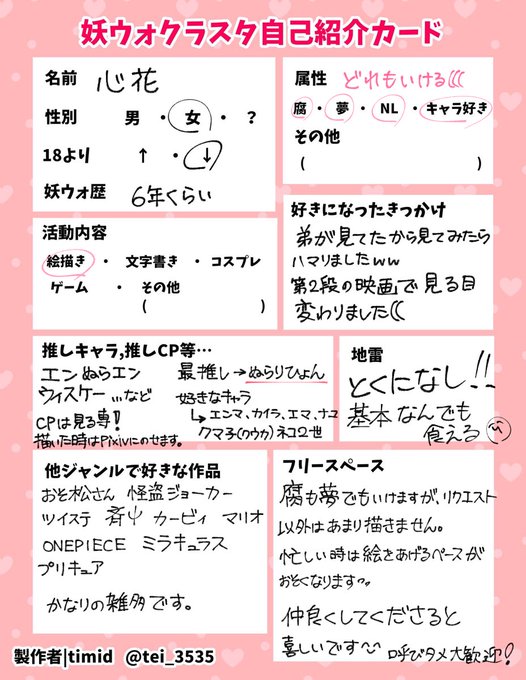 妖ウォクラスタ自己紹介カード
名前 心花
性別 男 ・ 女 ・ ?
18より ↑ ・ ↓
妖ウォ歴 6年くらい
属性 どれもいける(((
腐 ・ 夢 ・ NL ・ キャラ好き
その他
( )
活動内容
絵描き ・ 文字書き ・ コスプレ
ゲーム ・ その他
( )
好きになったきっかけ
弟が見てたから見てみたら
ハマりましたww
第2段の映画で見る目
変わりました((
推しキャラ,推しCP等…
エンぬらエン
ウィスケー ,,,など
CPは見る専!
描いた時はPixivにのせます。
最推し→ぬらりひょん
好きなキャラ
↳エンマ、カイラ、エマ、ナユ
クマ子(クウカ) ネコ2世
地雷
とくになし!!
基本なんでも
食える
他ジャンルで好きな作品
おそ松さん 怪盗ジョーカー
ツイステ 斉Ψ カービィ マリオ
ONEPIECE ミラキュラス
プリキュア
かなりの雑多です。
フリースペース
腐も夢でもいけますが、リクエスト
以外はあまり描きません。
忙しい時は絵をあげるペースが
おそくなります
仲良くしてくださると
喜しいです〜 呼びタメ大歓迎!
製作者|timid @tei_3535